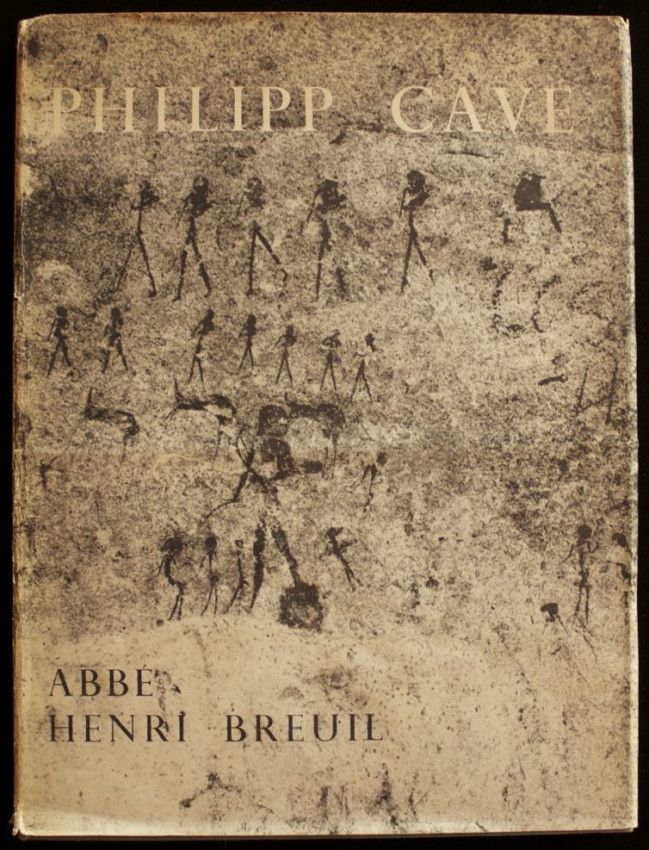 PHILIPP CAVE
ABBÉ
HENRI BREUIL